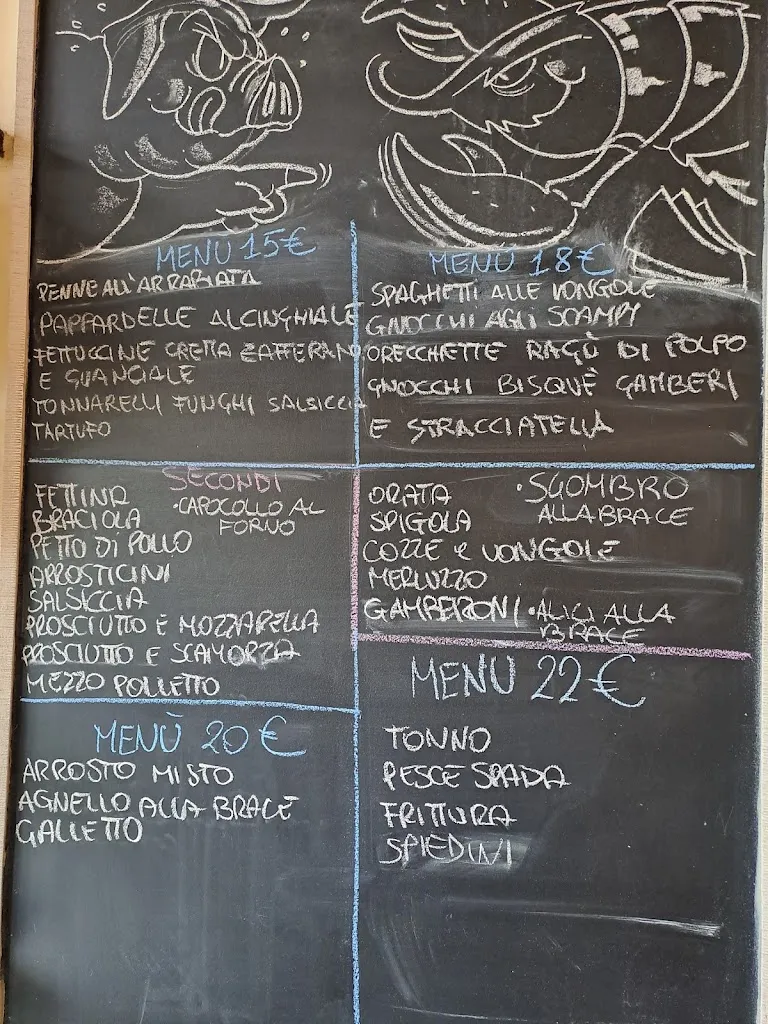 MENU 15€
PENNE ALL'ARRABIATA
PAPPARDELLE AL CINGHIALE
FETTUCCINE CREMA ZAFFERANO
E GUANCIALE
TONNARELLI FUNGHI SALSICCIA
TARTUFO
SECONDI
FETTINA
•CAPOCOLLO AL
FORNO
BRACIOLA
PETTO DI POLLO
ARROSTICINI
SALSICCIA
PROSCIUTTO E MOZZARELLA
PROSCIUTTO E SCAMORZA
MEZZO POLLETTO
MENÙ 20€
ARROSTO MISTO
AGNELLO ALLA BRACE
GALLETTO
MENÙ 18€
SPAGHETTI ALLE VONGOLE
GNOCCHI AGLI SCAMPI
ORECCHIETTE RAGÙ DI POLPO
GNOCCHI BISQUÈ GAMBERI
E STRACCIATELLA
ORATA
•SGOMBRO
ALLA BRACE
SPIGOLA
COZZE e VONGOLE
MERLUZZO
GAMBERONI •ALICI ALLA
BRACE
MENU 22€
TONNO
PESCE SPADA
FRITTURA
SPIEDINI